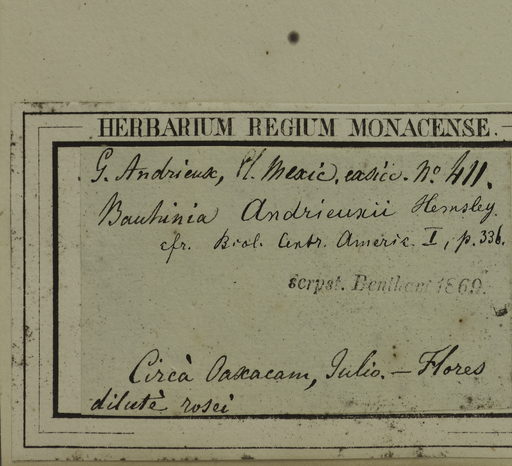 HERBARIUM REGIUM MONACENSE.
G. Andrieux, Pl. Mexic. exsicc. No 411.
Bauhinia Andrieuxii Hemsley.
cfr. Biol. Centr. Americ. I, p. 336.
scrpst. Bentham 1869.
Circà Oaxacam, Julio. — Flores
dilutè rosei